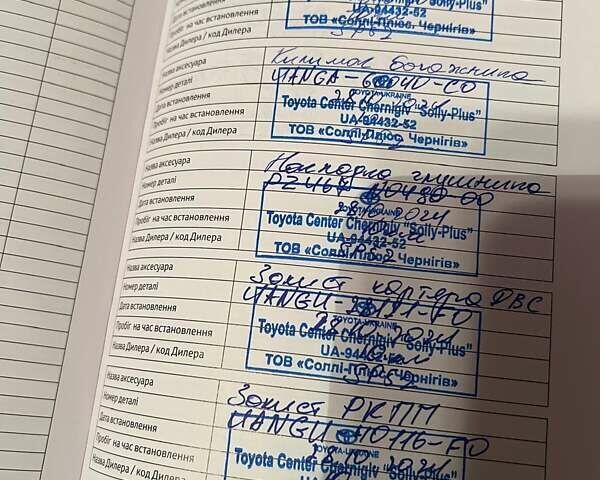 Дата встановлення
Пробіг на час встановлення
Назва Дилера / код Дилера
Toyota Center Chernigiv "Solly-Plus"
UA-94432-52
ТОВ «Соллі-Плюс, Чернігів»
Назва аксесуара
Килимок багажника
Номер деталі
Дата встановлення
TOYOTA-UKRAINE
Пробіг на час встановлення
Toyota Center Chernigiv "Solly-Plus"
UA-94432-52
Назва Дилера / код Дилера
ТОВ «Соллі-Плюс, Чернігів»
Назва аксесуара
Накладка глушника
Номер деталі
Дата встановлення
28.10.2024
Пробіг на час встановлення
Toyota Center Chernigiv "Solly-Plus"
UA-94432-52
Назва Дилера / код Дилера
ТОВ «Соллі-Плюс, Чернігів»
Назва аксесуара
Захист картера ДВС
Номер деталі
Дата встановлення
TOYOTA-UKRAINE
28.10.2024
Пробіг на час встановлення
Toyota Center Chernigiv "Solly-Plus"
UA-94432-52
Назва Дилера / код Дилера
ТОВ «Соллі-Плюс, Чернігів»
Назва аксесуара
Захист РКПП
Номер деталі
Дата встановлення
TOYOTA-UKRAINE
28.10.2024
Пробіг на час встановлення
Toyota Center Chernigiv "Solly-Plus"
Назва Дилера / код Дилера